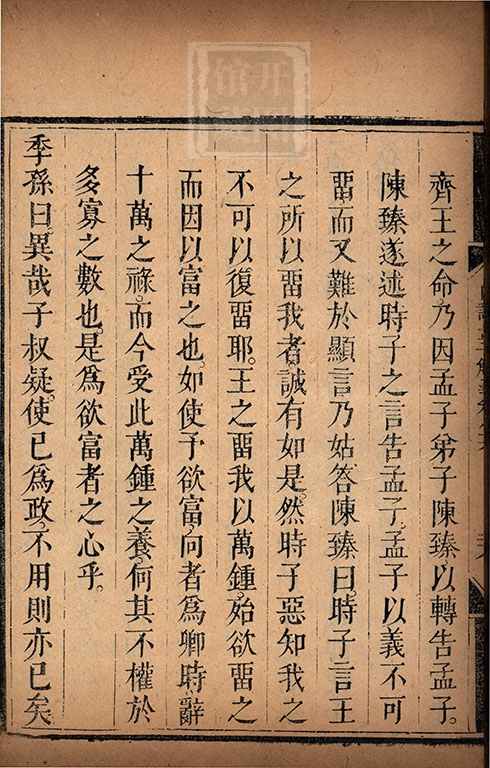 齊王之命。乃因孟子弟子陳臻以轉告孟子。
陳臻遂述時子之言告孟子。孟子以義不可
畱而又難於顯言乃姑答陳臻曰。時子言王
之所以畱我者誠有如是。然時子惡知我之
不可以復畱耶。王之畱我以萬鍾。始欲畱之
而因以富之也。如使予欲富。向者爲卿時。辭
十萬之祿。而今受此萬鍾之養。何其不權於
多寡之數也。是爲欲富者之心乎。
季孫曰。異哉子叔疑。使已爲政。不用則亦已矣